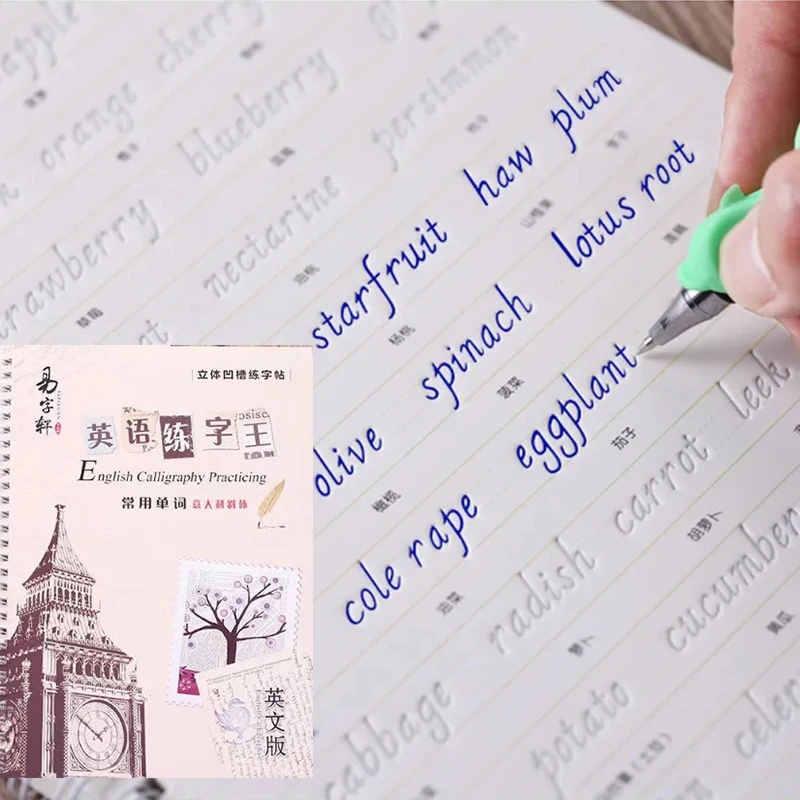 apple cherry
orange blueberry persimmon
strawberry nectarine starfruit haw plum
草莓 油桃 杨桃 山楂果 李子
olive spinach lotus root
橄榄 菠菜 莲藕
cole rape eggplant leek
油菜 茄子
cabbage radish carrot
萝卜 胡萝卜
potato cucumber
黄瓜
celery
易字轩
立体凹槽练字帖
英语练字王
English Calligraphy Practicing
常用单词 意大利斜体
英文版